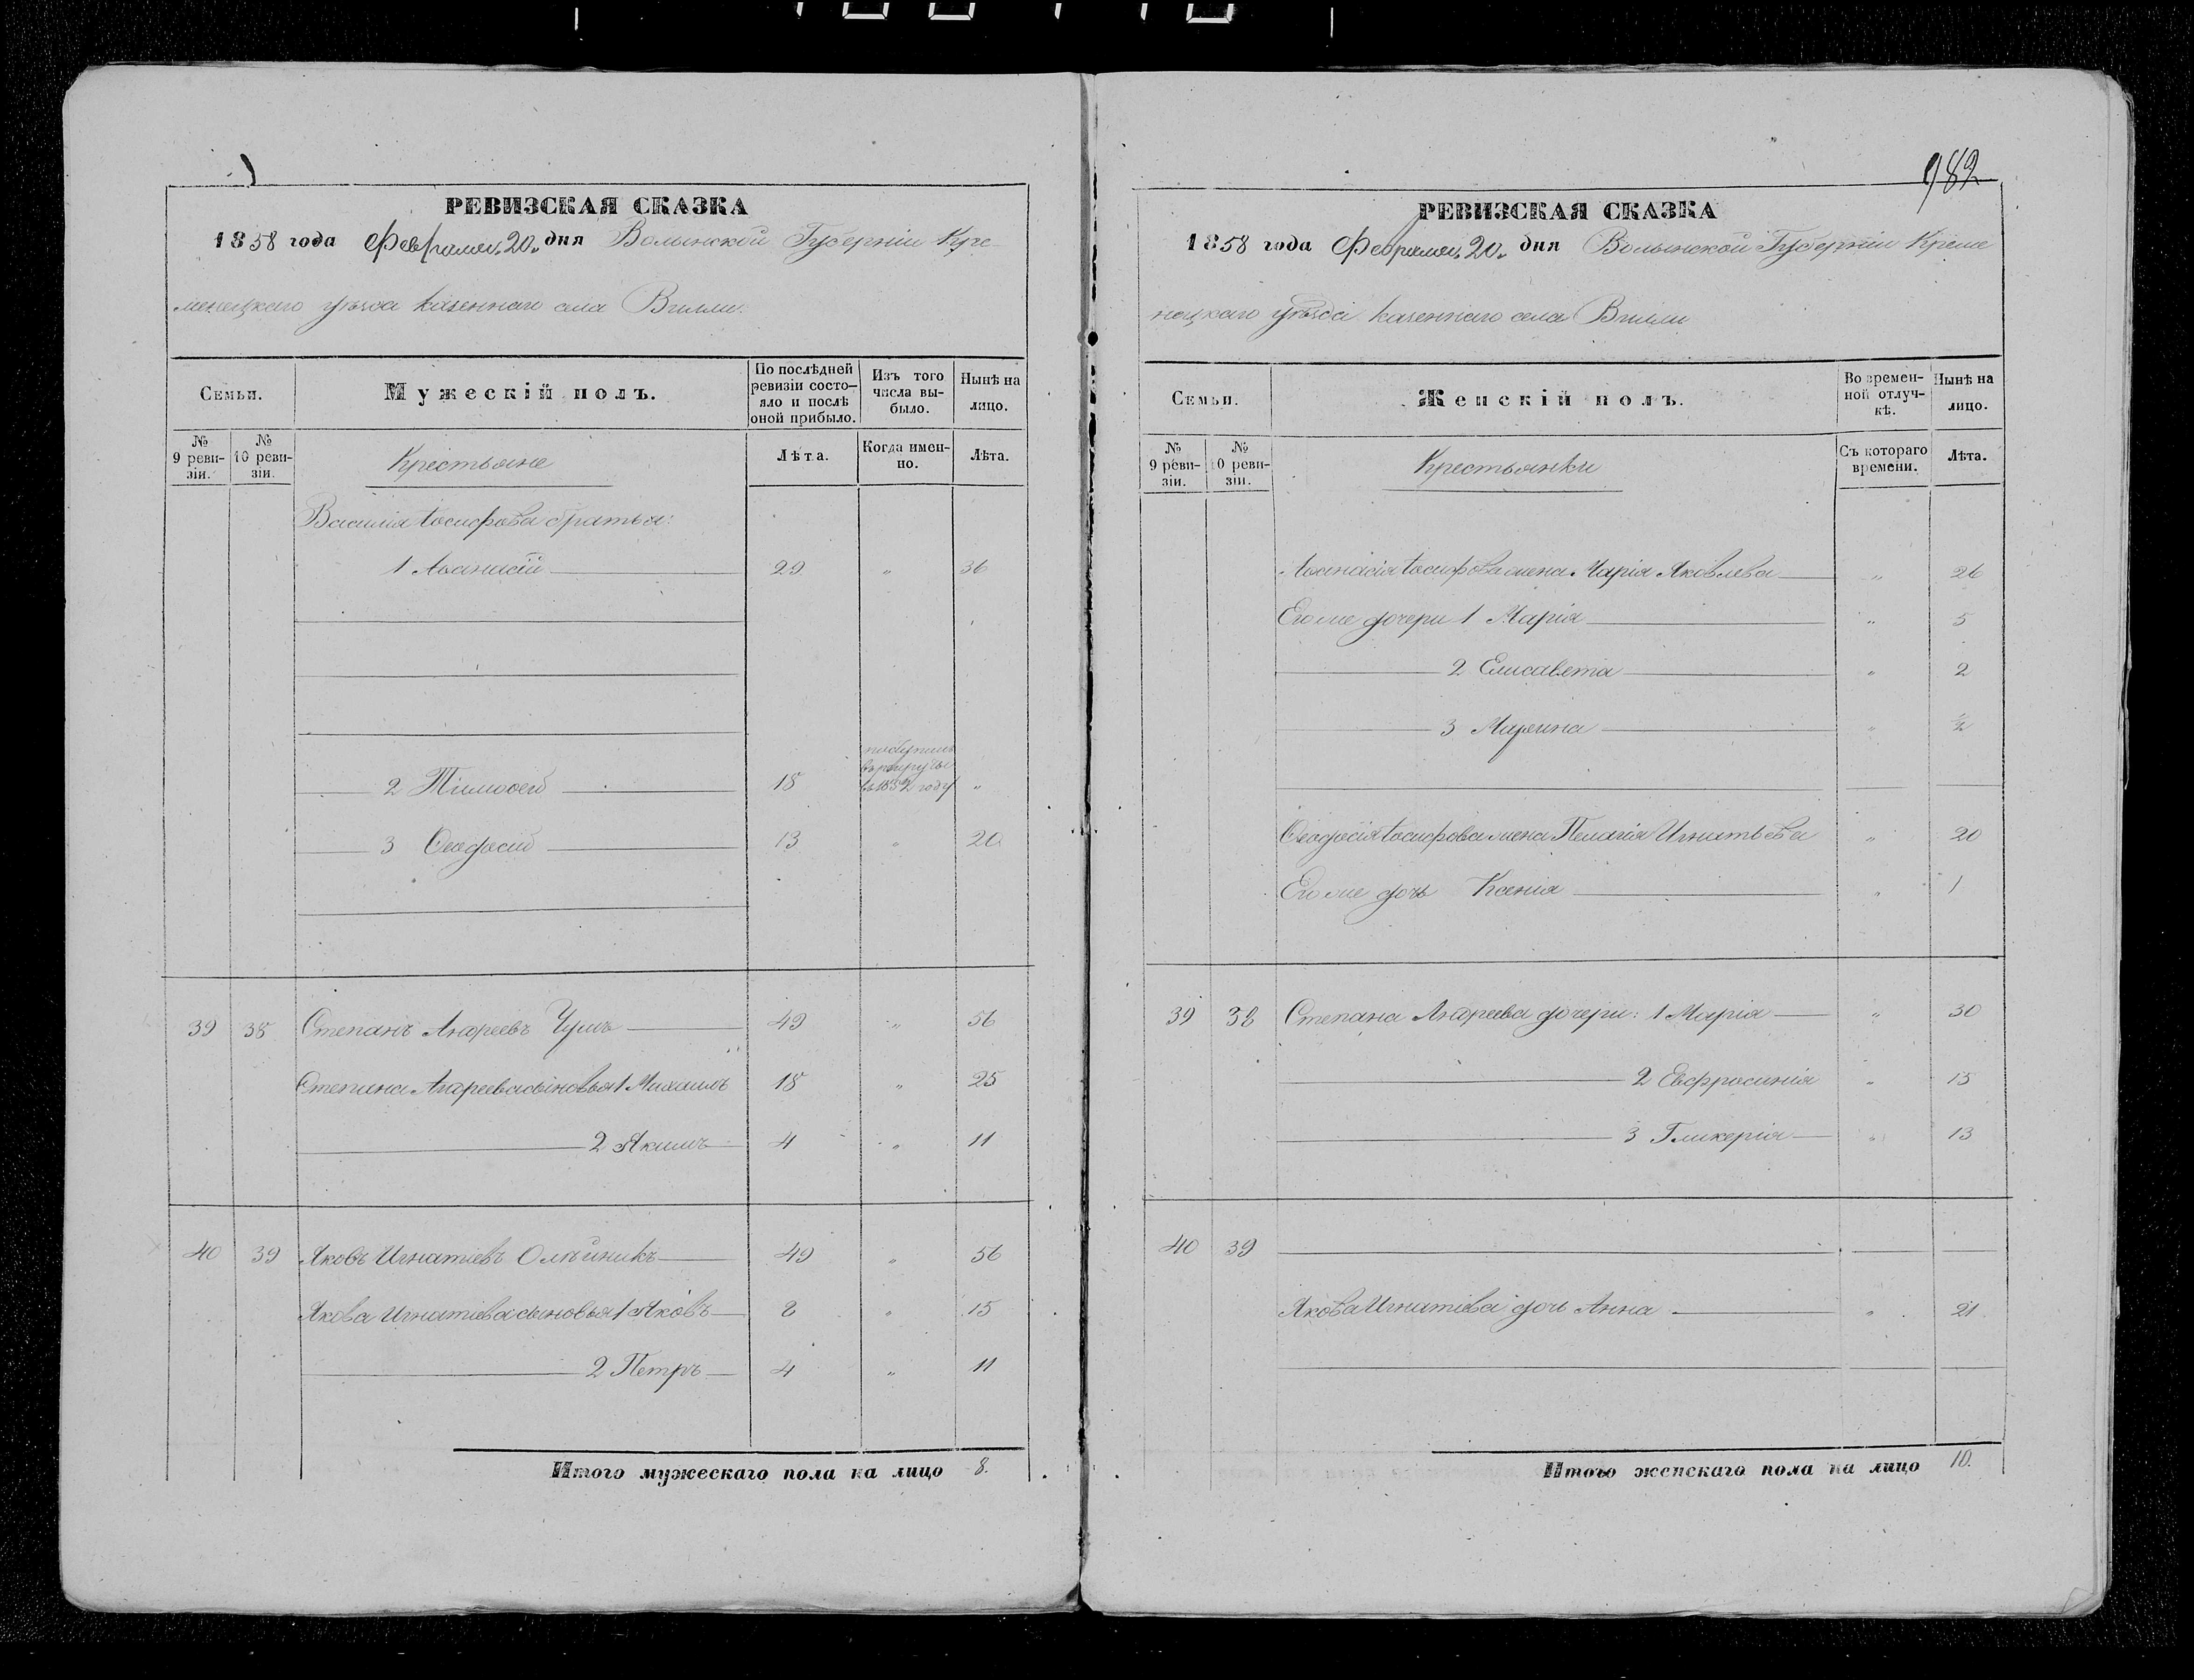 982
РЕВИЗСКАЯ СКАЗКА
1858 года Февраля 20 дня Волынской Губерніи Кре-
менецкаго уѣзда казеннаго села Вилли.
Семьи.
Мужескій полъ.
По послѣдней ревизіи состо-
яло и послѣ оной прибыло.
Изъ того числа вы-
было.
Нынѣ на лицо.
№ 9 реви-
зіи.
№ 10 реви-
зіи.
Крестьяне
Лѣта.
Когда имен-
но.
Лѣта.
Василія Іосифова братья:
1 Аѳанасій 29 " 36
2 Тимоѳей 18 поступилъ въ рекруты въ 1852 году "
3 Ѳеодосій 13 " 20
39 38 Степанъ Андреевъ 49 " 56
Степана Андреева сыновья 1 Михаилъ 18 " 25
2 Якимъ 4 " 11
40 39 Яковъ Игнатіевъ Олѣйникъ 49 " 56
Якова Игнатіева сыновья 1 Яковъ 8 " 15
2 Петръ 4 " 11
Итого мужескаго пола на лицо 8.
РЕВИЗСКАЯ СКАЗКА
1858 года Февраля 20 дня Волынской Губерніи Креме
нецкаго уѣзда казеннаго села Вилли
Семьи.
Женскій полъ.
Во времен-
ной отлуч-
кѣ.
Нынѣ на лицо.
№ 9 реви-
зіи.
№ 10 реви-
зіи.
Крестьянки
Съ котораго времени.
Лѣта.
Аѳанасія Іосифова жена Марія Яковлева " 26
Его же дочери 1 Марія " 5
2 Елисавета " 2
3 Марина " ½
Ѳеодосія Іосифова жена Пелагія Игнатьева " 20
Его же дочь Ксенія " 1
39 38 Степана Андреева дочери: 1 Марія " 30
2 Евфросинія " 15
3 Гликерія " 13
40 39
Якова Игнатіева дочь Анна " 21
Итого женскаго пола на лицо 10.